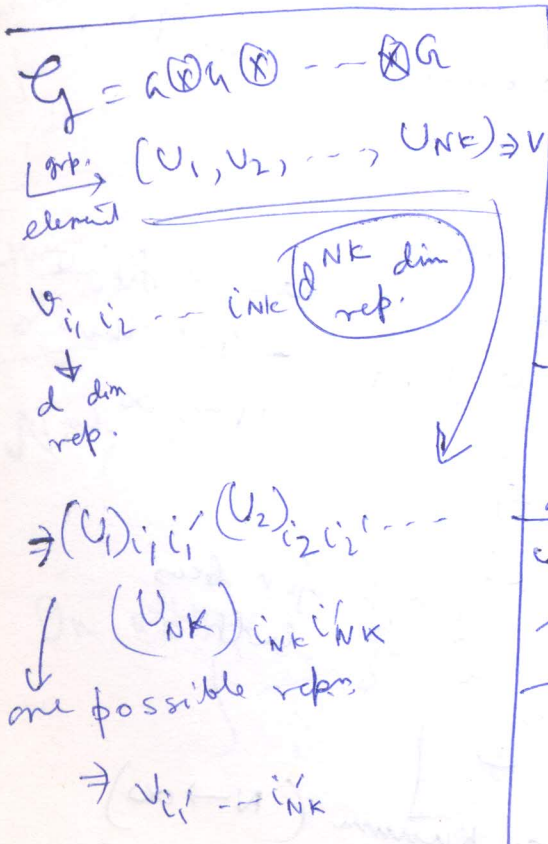 G = G ⊗ G ⊗ --- ⊗ G
grp. element → (U₁, U₂, ---, U_NK) ⇒ V
v_{i₁ i₂ --- i_NK} d^{NK} dim rep.
↓
d dim
rep.
⇒ (U₁)_{i₁ i₁'} (U₂)_{i₂ i₂'} ---
(U_NK)_{i_NK i'_NK}
one possible repn.
⇒ v_{i₁' --- i'_NK}